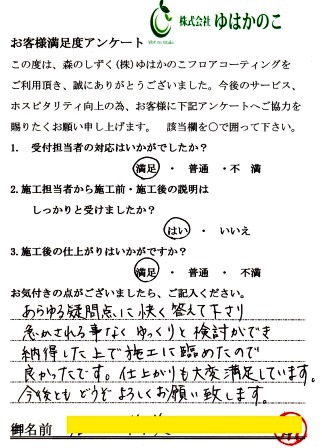 株式会社 ゆはかのこ
お客様満足度アンケート
この度は、森のしずく(株)ゆはかのこフロアコーティングを
ご利用頂き、誠にありがとうございました。今後のサービス、
ホスピタリティ向上の為、お客様に下記アンケートへご協力を
賜りたくお願い申し上げます。 該当欄を○で囲って下さい。
1. 受付担当者の対応はいかがでしたか?
満足 ・ 普通 ・不 満
2.施工担当者から施工前・施工後の説明は
しっかりと受けましたか?
はい ・ いいえ
3.施工後の仕上がりはいかがですか?
満足 ・ 普通 ・ 不満
お気付きの点がございましたら、ご記入ください。
あらゆる疑問点に快く答えて下さり
急かされる事なくゆっくりと検討ができ
納得した上で施工に臨めたので
良かったです。仕上がりも大変満足しています。
今後ともどうぞよろしくお願い致します。
御名前